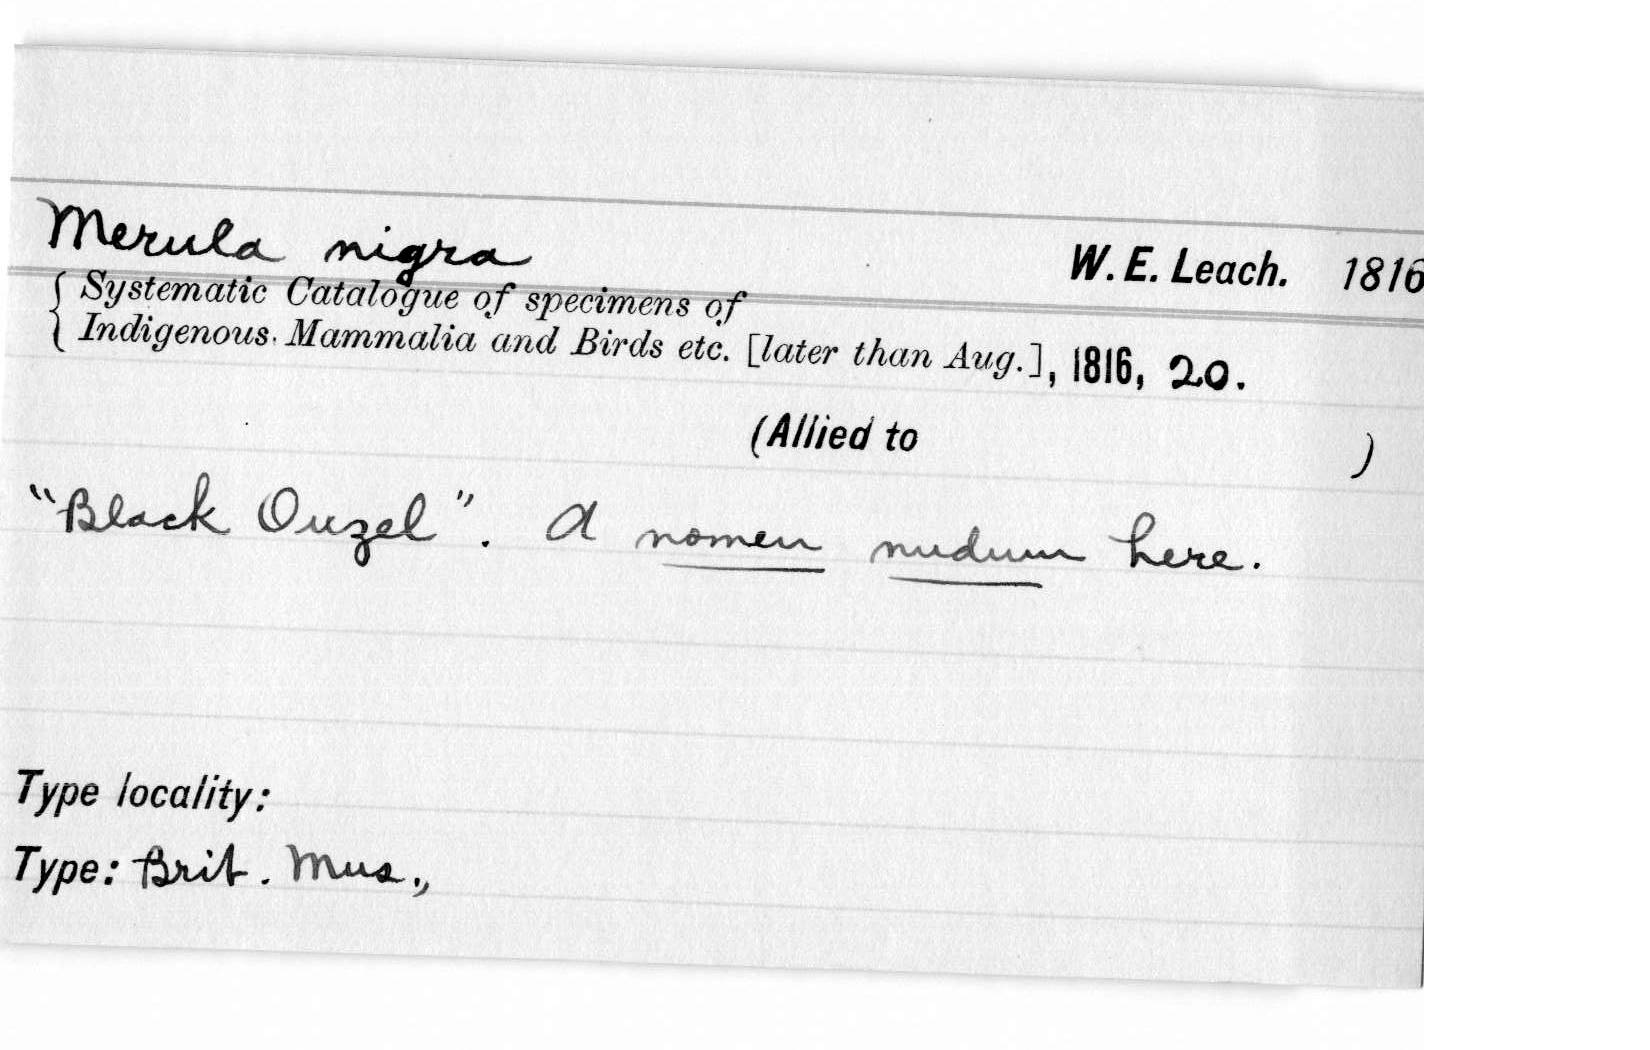 Merula nigra W. E. Leach. 1816
Systematic Catalogue of specimens of
Indigenous. Mammalia and Birds etc. [later than Aug.], 1816, 20.
(Allied to )
"Black Ouzel". A nomen nudum here.
Type locality:
Type: Brit. Mus.,